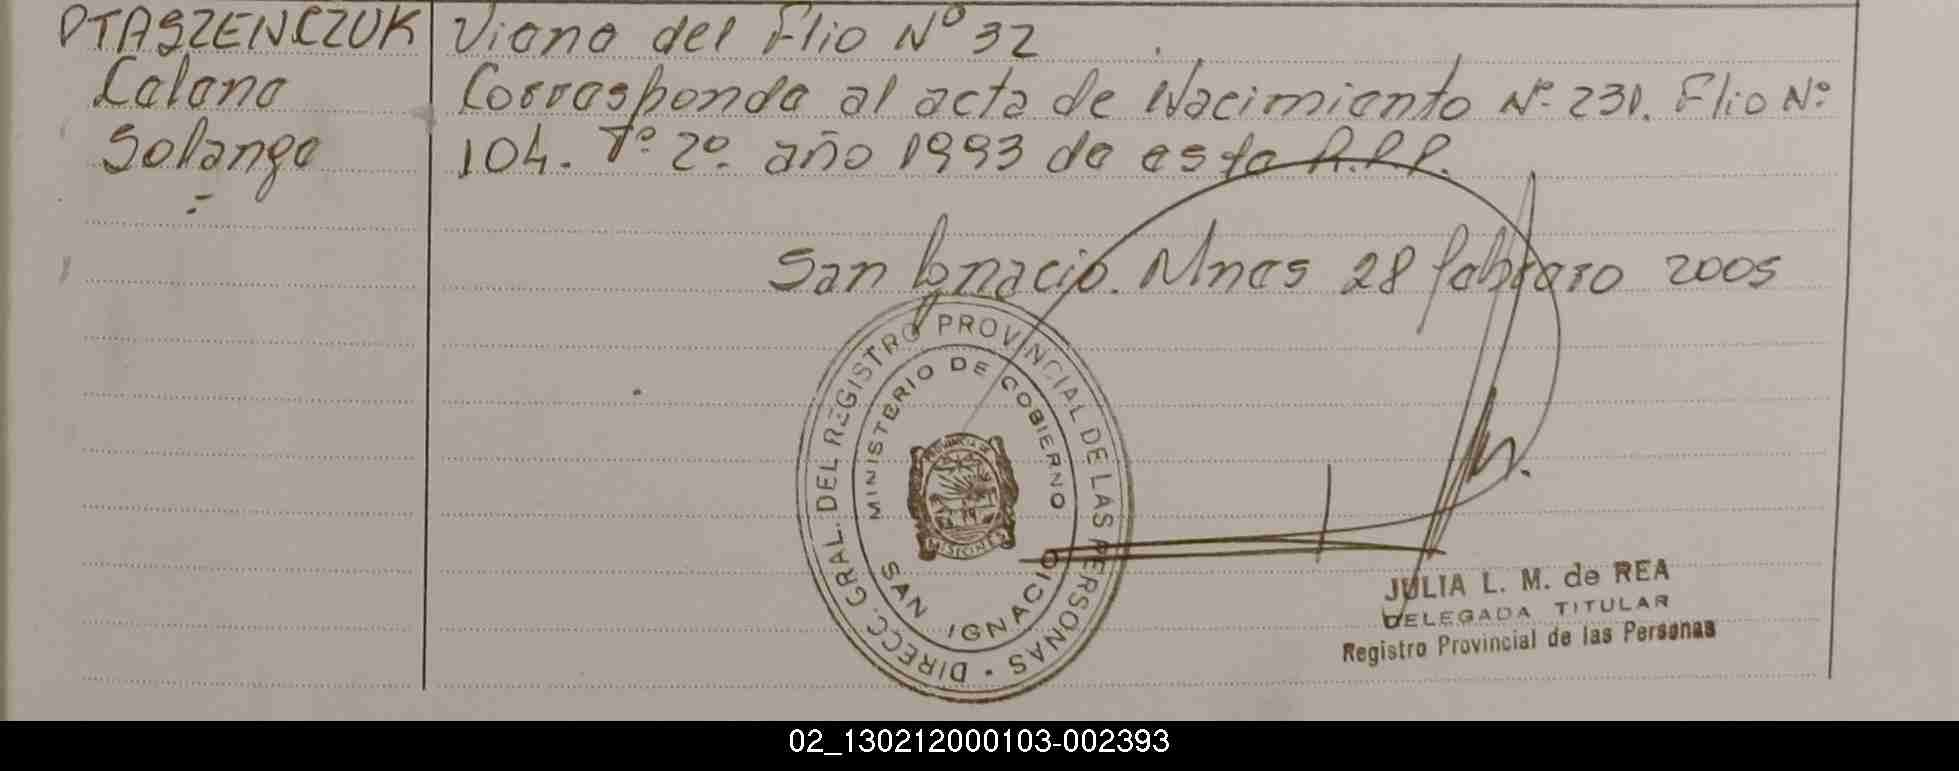 PTASZENCZUK
Celene
Solange
Viene del Flio Nº 32
Corresponde al acta de Nacimiento Nº 231. Flio Nº
104. Tº 2º. año 1993 de esta R.P.P.
San Ignacio. Mnes 28 febrero 2005
DIRECC. GRAL. DEL REGISTRO PROVINCIAL DE LAS PERSONAS
MINISTERIO DE GOBIERNO
PROVINCIA DE
MISIONES
SAN IGNACIO
JULIA L. M. de REA
DELEGADA TITULAR
Registro Provincial de las Personas
02_130212000103-002393